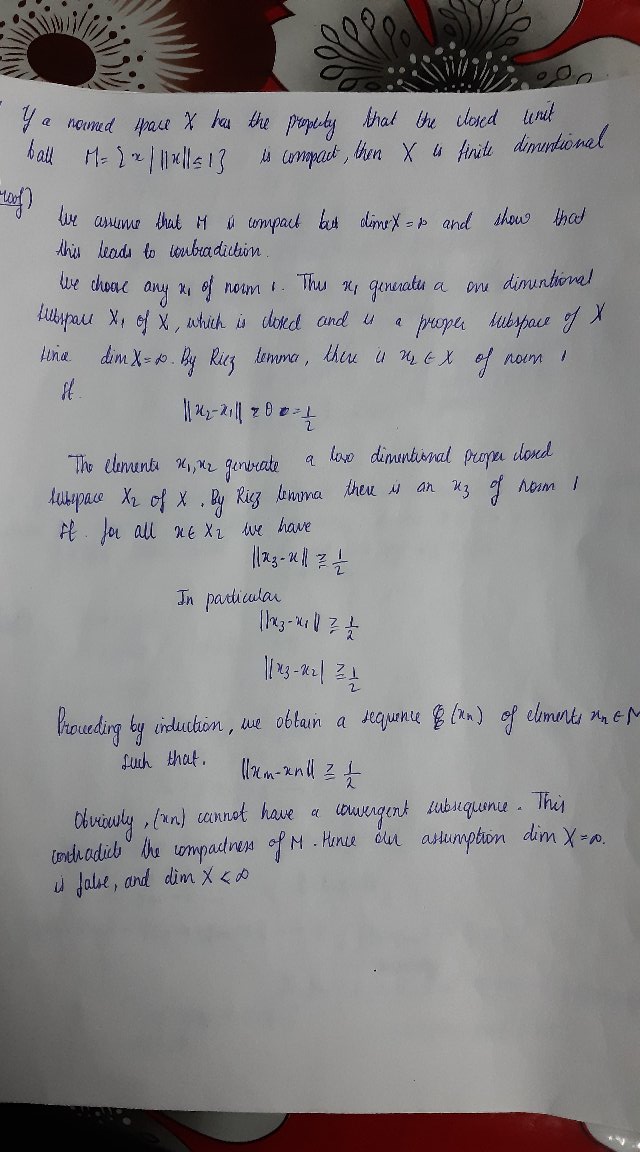 If a normed space X has the property that the closed unit
ball M = {x | ||x|| ≤ 1} is compact, then X is finite dimentional
Proof)
We assume that M is compact but dim X = ∞ and show that
this leads to contradiction.
We choose any x₁ of norm 1. This x₁ generates a one dimentional
subspace X₁ of X, which is closed and is a proper subspace of X
since dim X = ∞. By Riez lemma, there is x₂ ∈ X of norm 1
st.
||x₂-x₁|| ≥ θ = 1/2
The elements x₁, x₂ generate a two dimentional proper closed
subspace X₂ of X. By Riez lemma there is an x₃ of norm 1
st. for all x ∈ X₂ we have
||x₃-x|| ≥ 1/2
In particular
||x₃-x₁|| ≥ 1/2
||x₃-x₂| ≥ 1/2
Proceeding by induction, we obtain a sequence (xn) of elements xn ∈ M
such that.
||xm-xn|| ≥ 1/2
Obviously, (xn) cannot have a convergent subsequence. This
contradicts the compactness of M. Hence our assumption dim X = ∞.
is false, and dim X < ∞